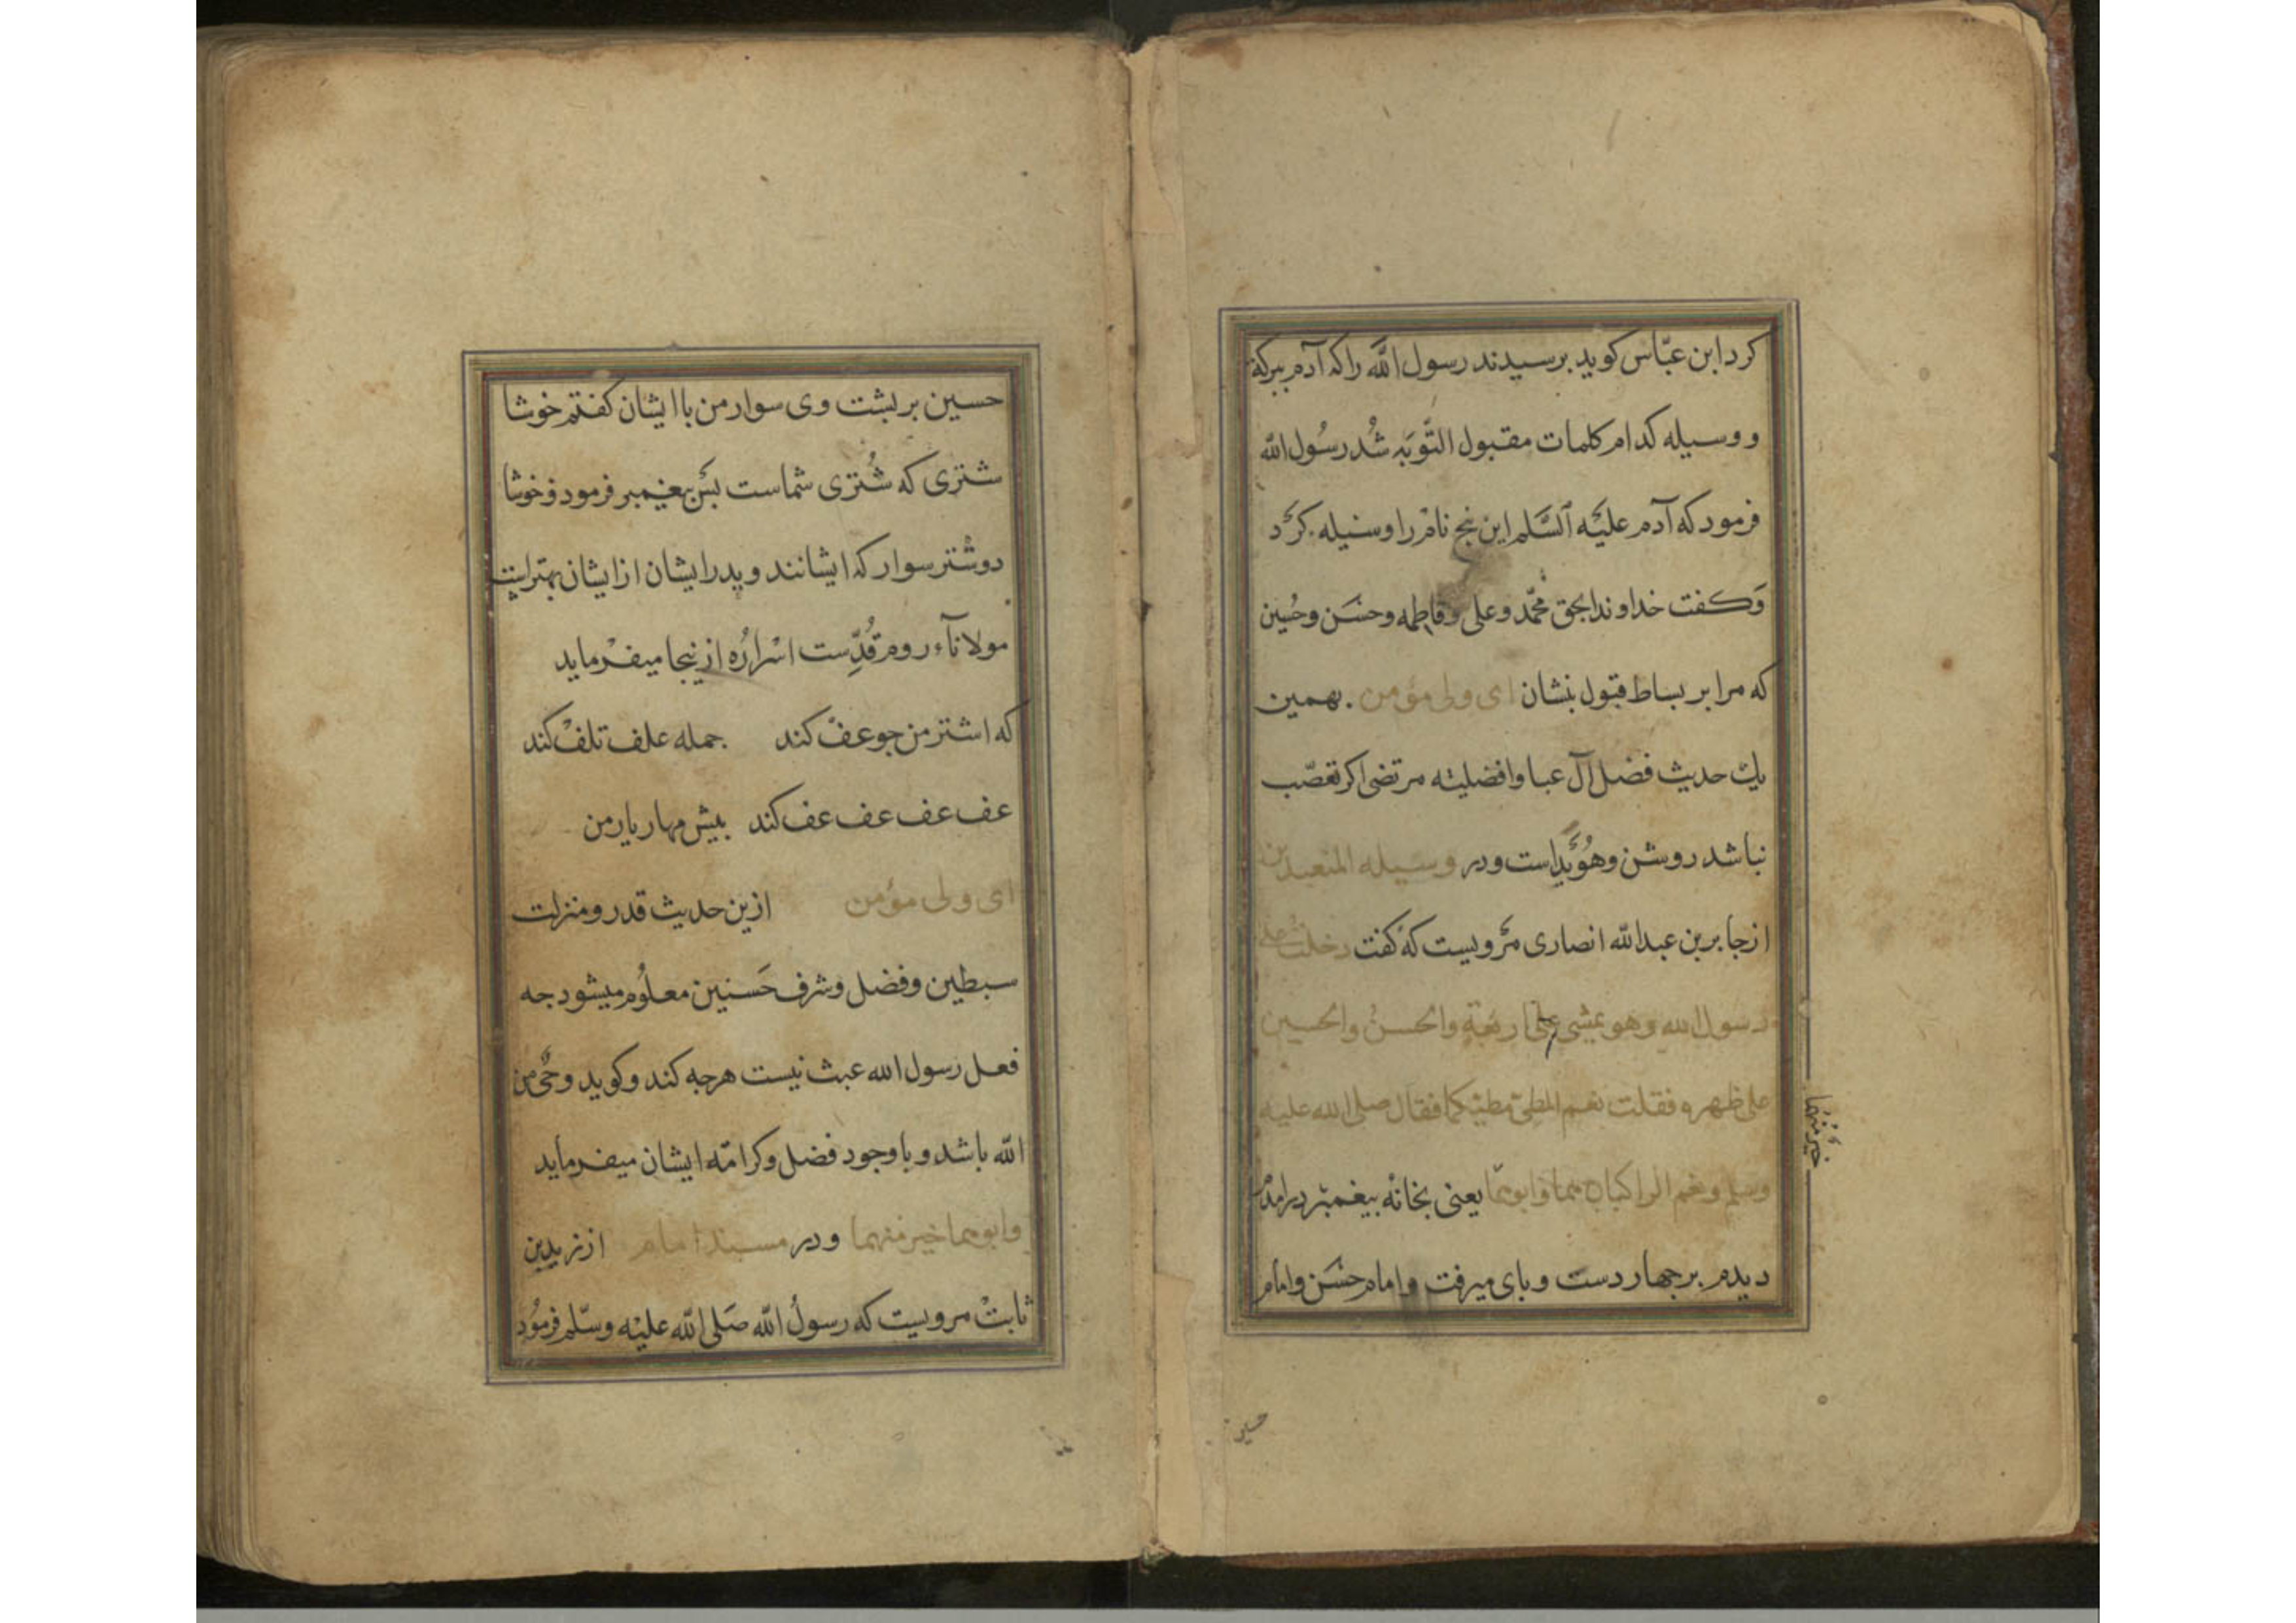 کرد ابن عبّاس کوید برسیدند رسول اللّه را که آدم ببرکة
و وسیله کدام کلمات مقبول التَّوبَه شُد رسُول اللّه
فرمود که آدم علیَه السَّلم این بنج نام را وسیله کرد
وَکفت خداوندا بحق محمّد وعلی وفاطمه وحسَن وحُسین
که مرا بر بساط قبول بنشان ای ولی مؤمن . بهمین
یك حدیث فضل آل عبا وافضلیته مرتضی اکر تعصّب
نباشد روشن وهُوَیداست ودر وسیله المتعبدین
از جابر بن عبداللّه انصاری مرویست که کفت دخلت علی
رسول الله وهو یمشی علی اربعة والحسنُ والحسین
علی ظهره فقلت نعم المطیّ مطیّکما فقال صلی الله علیه
وسلم ونعم الراکبان هما وابوهما یعنی بخانه بیغمبر درامدم
خیرٌ منهُما
دیدم برجهار دست وبای میرفت وامام حسَن وامام
حسین
حسین بر بشت وی سوار من با ایشان کفتم خوشا
شتری که شُتری شماست بس بیغمبر فرمود وخوشا
دوشتر سوار که ایشانند وبدر ایشان از ایشان بهتر است
مولانآء روم قُدِّست اسْرارُه ازینجا میفرماید
که اشتر من جو عفْ کند جمله علف تلفْ کند
عف عف عف عف کند بیش مهار یار من
ای ولی مؤمن ازین حدیث قدر ومنزلت
سبطین وفضل وشرف حَسنین معلُوم میشود جه
فعل رسول الله عبث نیست هرجه کند وکوید وحی من
اللّه باشد وبا وجود فضل وکرامّه ایشان میفرماید
وابوهما خیر منهما ودر مسند امام از زیدبن
ثابتْ مرویست که رسولُ اللّه صَلی اللّه علیْه وسّلم فرمُود